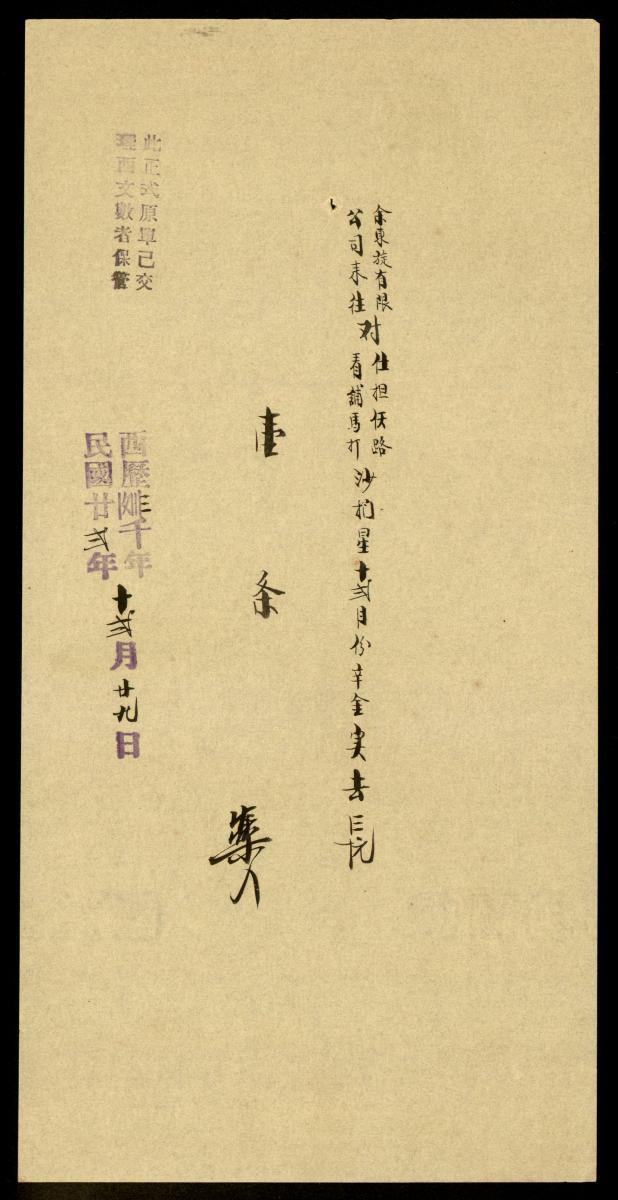 余東旋有限
公司来往对
仕担伩路
看舖馬打
沙扪星十弍月份辛金実去
壹条
此正式原單已交
理西文數者保管
西歷 千年
民國廿弍年
十弍月廿九日